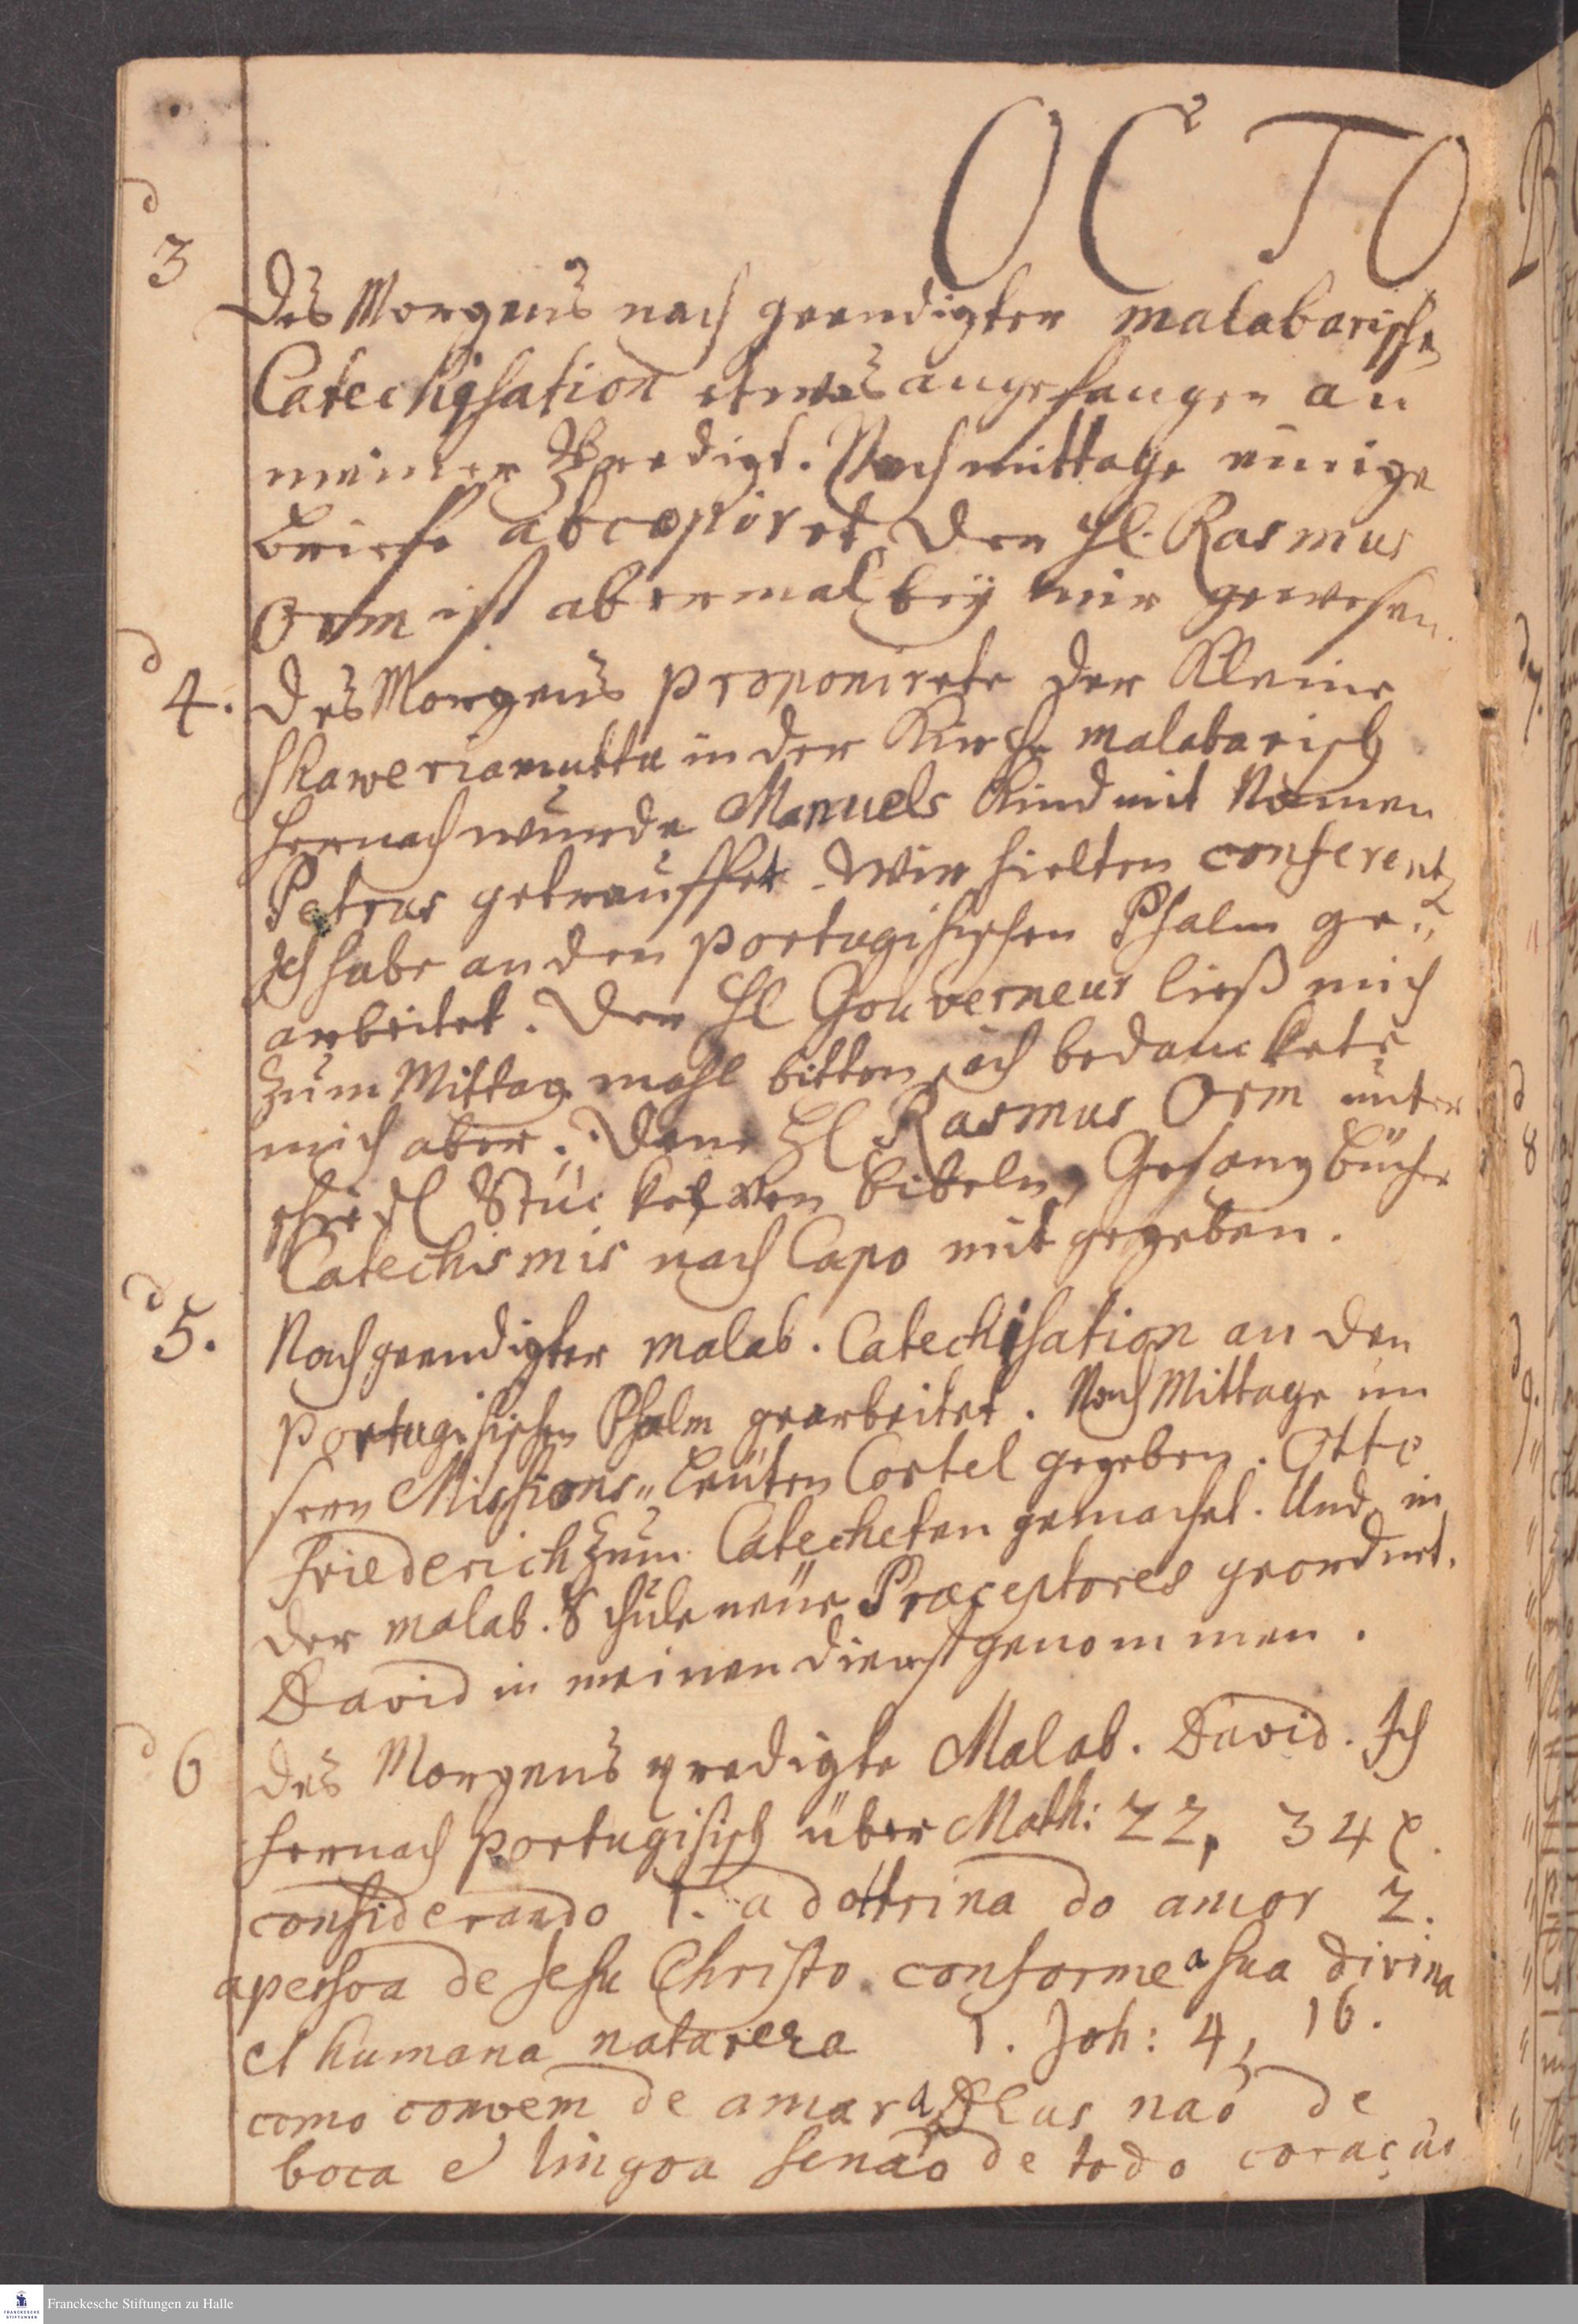 OCTO
d 3 Des Morgens nach geendigter malabarische
Catechisation etwas angefangen an
meiner Predigt. Nachmittage einige
briefe abcopiret. Der Hl. Rasmus
Orm ist abermal bey mir gewesen.
d 4. Des Morgens proponirete der Kleine
Skaweriamuttu in der Kirche malabarisch
hernach wurde Manuels Kind mit Namen
Petrus getauffet. Wir hielten conferentz
Ich habe an den portugisischen Psalm ge„
arbeitet. Der Hl Gouverneur ließ mich
zum Mittag mahl bitten, ich bedanckete
mich aber. Dem Hl Rasmus Orm unter
schiedl Stücke von Bibeln, Gesang bücher
Catechismis nach Capo mit gegeben.
d 5. Nach geendigter malab. Catechisation an den
portugisischen Psalm gearbeitet. Nach Mittage un
sern Missions„ leuten Costel gegeben. Otto
Friederich zum Catecheten gemachet. Und in
der malab. Schule neue Præceptores geordnet.
David in meinen dienst genommen.
d 6 des Morgens predigte Malab. David. Ich
hernach portugisisch über Math: 22, 34
considerando 1. a dottrina do amor 2.
a pessoa de Jesu Christo conforme a sua divina
et humana natureza 1. Joh: 4, 16.
como convem de amar a DEus naõ de
boca e lingoa senaõ de todo coraçaõ